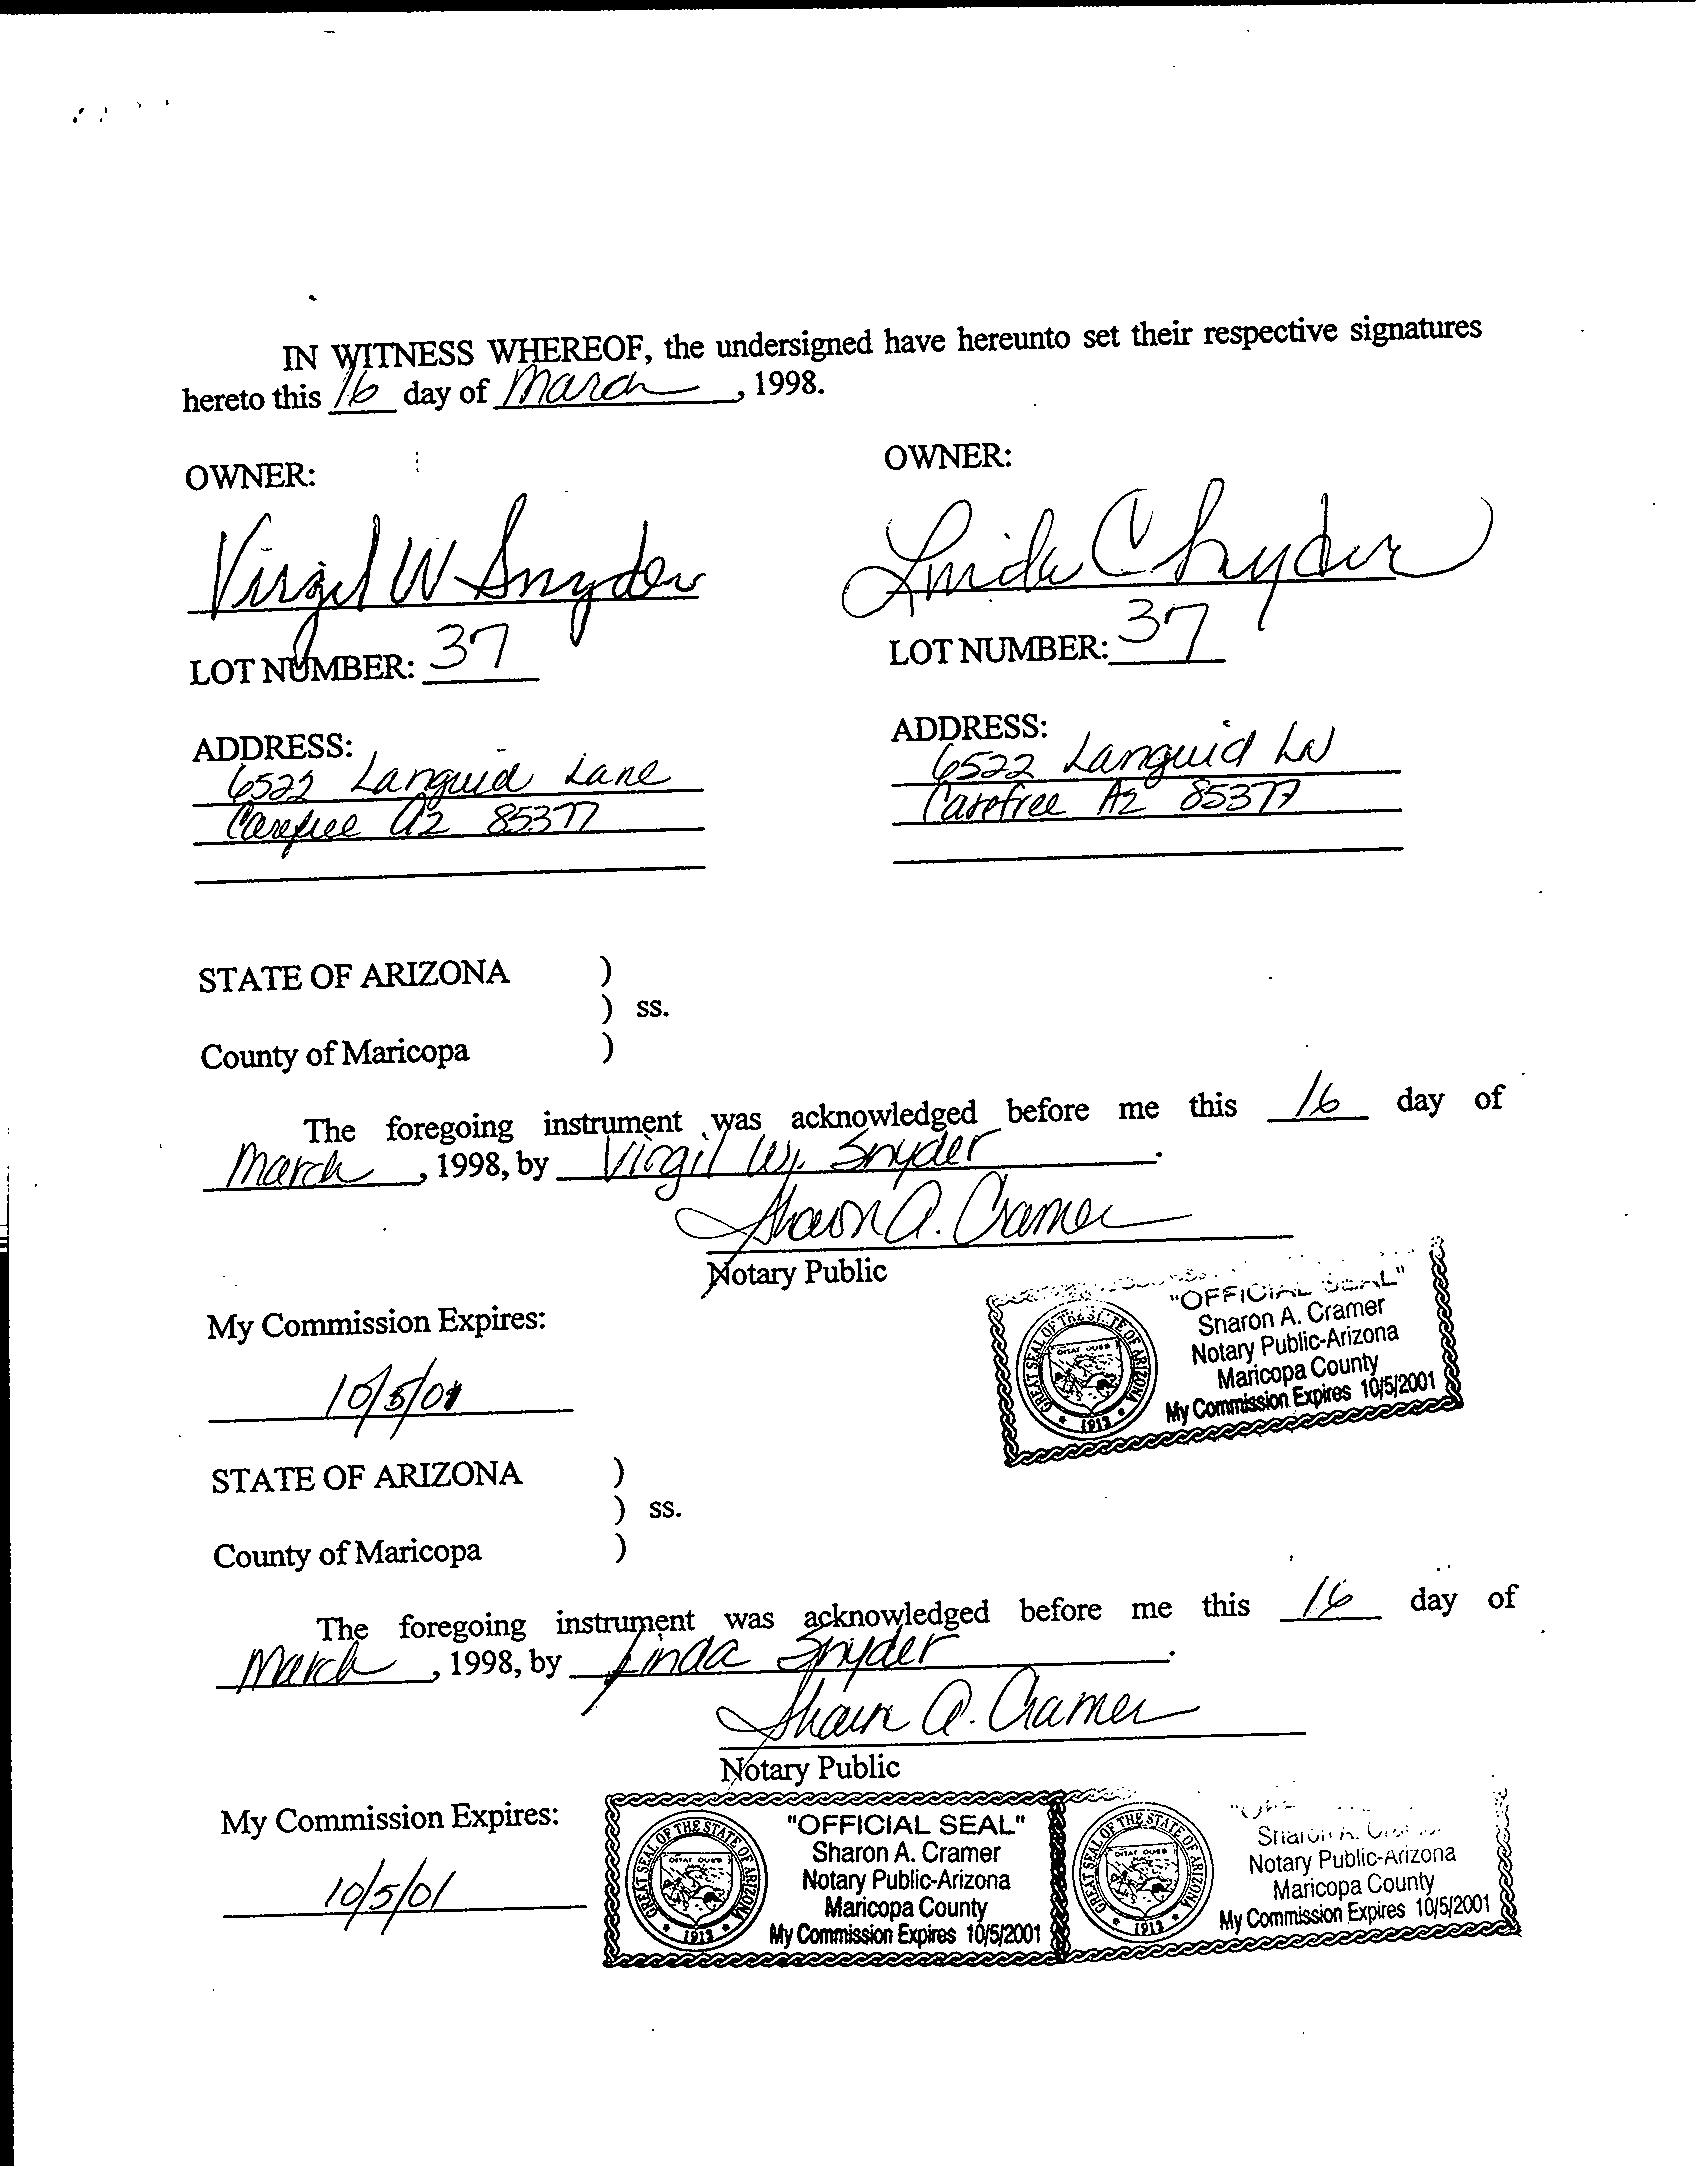 IN WITNESS WHEREOF, the undersigned have hereunto set their respective signatures
hereto this 16 day of March, 1998.
OWNER: OWNER:
Virgil W Snyder Linda C Snyder
LOT NUMBER: 37 LOT NUMBER: 37
ADDRESS: ADDRESS:
6522 Languid Lane 6522 Languid LN
Carefree AZ 85377 Carefree AZ 85377
STATE OF ARIZONA )
) ss.
County of Maricopa )
The foregoing instrument was acknowledged before me this 16 day of
March, 1998, by Virgil W. Snyder.
Sharon A. Cramer
Notary Public
My Commission Expires:
10/5/01
"OFFICIAL SEAL"
Sharon A. Cramer
Notary Public-Arizona
Maricopa County
My Commission Expires 10/5/2001
GREAT SEAL OF THE STATE OF ARIZONA
1912
STATE OF ARIZONA )
) ss.
County of Maricopa )
The foregoing instrument was acknowledged before me this 16 day of
March, 1998, by Linda Snyder.
Sharon A. Cramer
Notary Public
My Commission Expires:
10/5/01
"OFFICIAL SEAL"
Sharon A. Cramer
Notary Public-Arizona
Maricopa County
My Commission Expires 10/5/2001
GREAT SEAL OF THE STATE OF ARIZONA
1912
Sharon A.
Notary Public-Arizona
Maricopa County
My Commission Expires 10/5/2001
GREAT SEAL OF THE STATE OF ARIZONA
1912